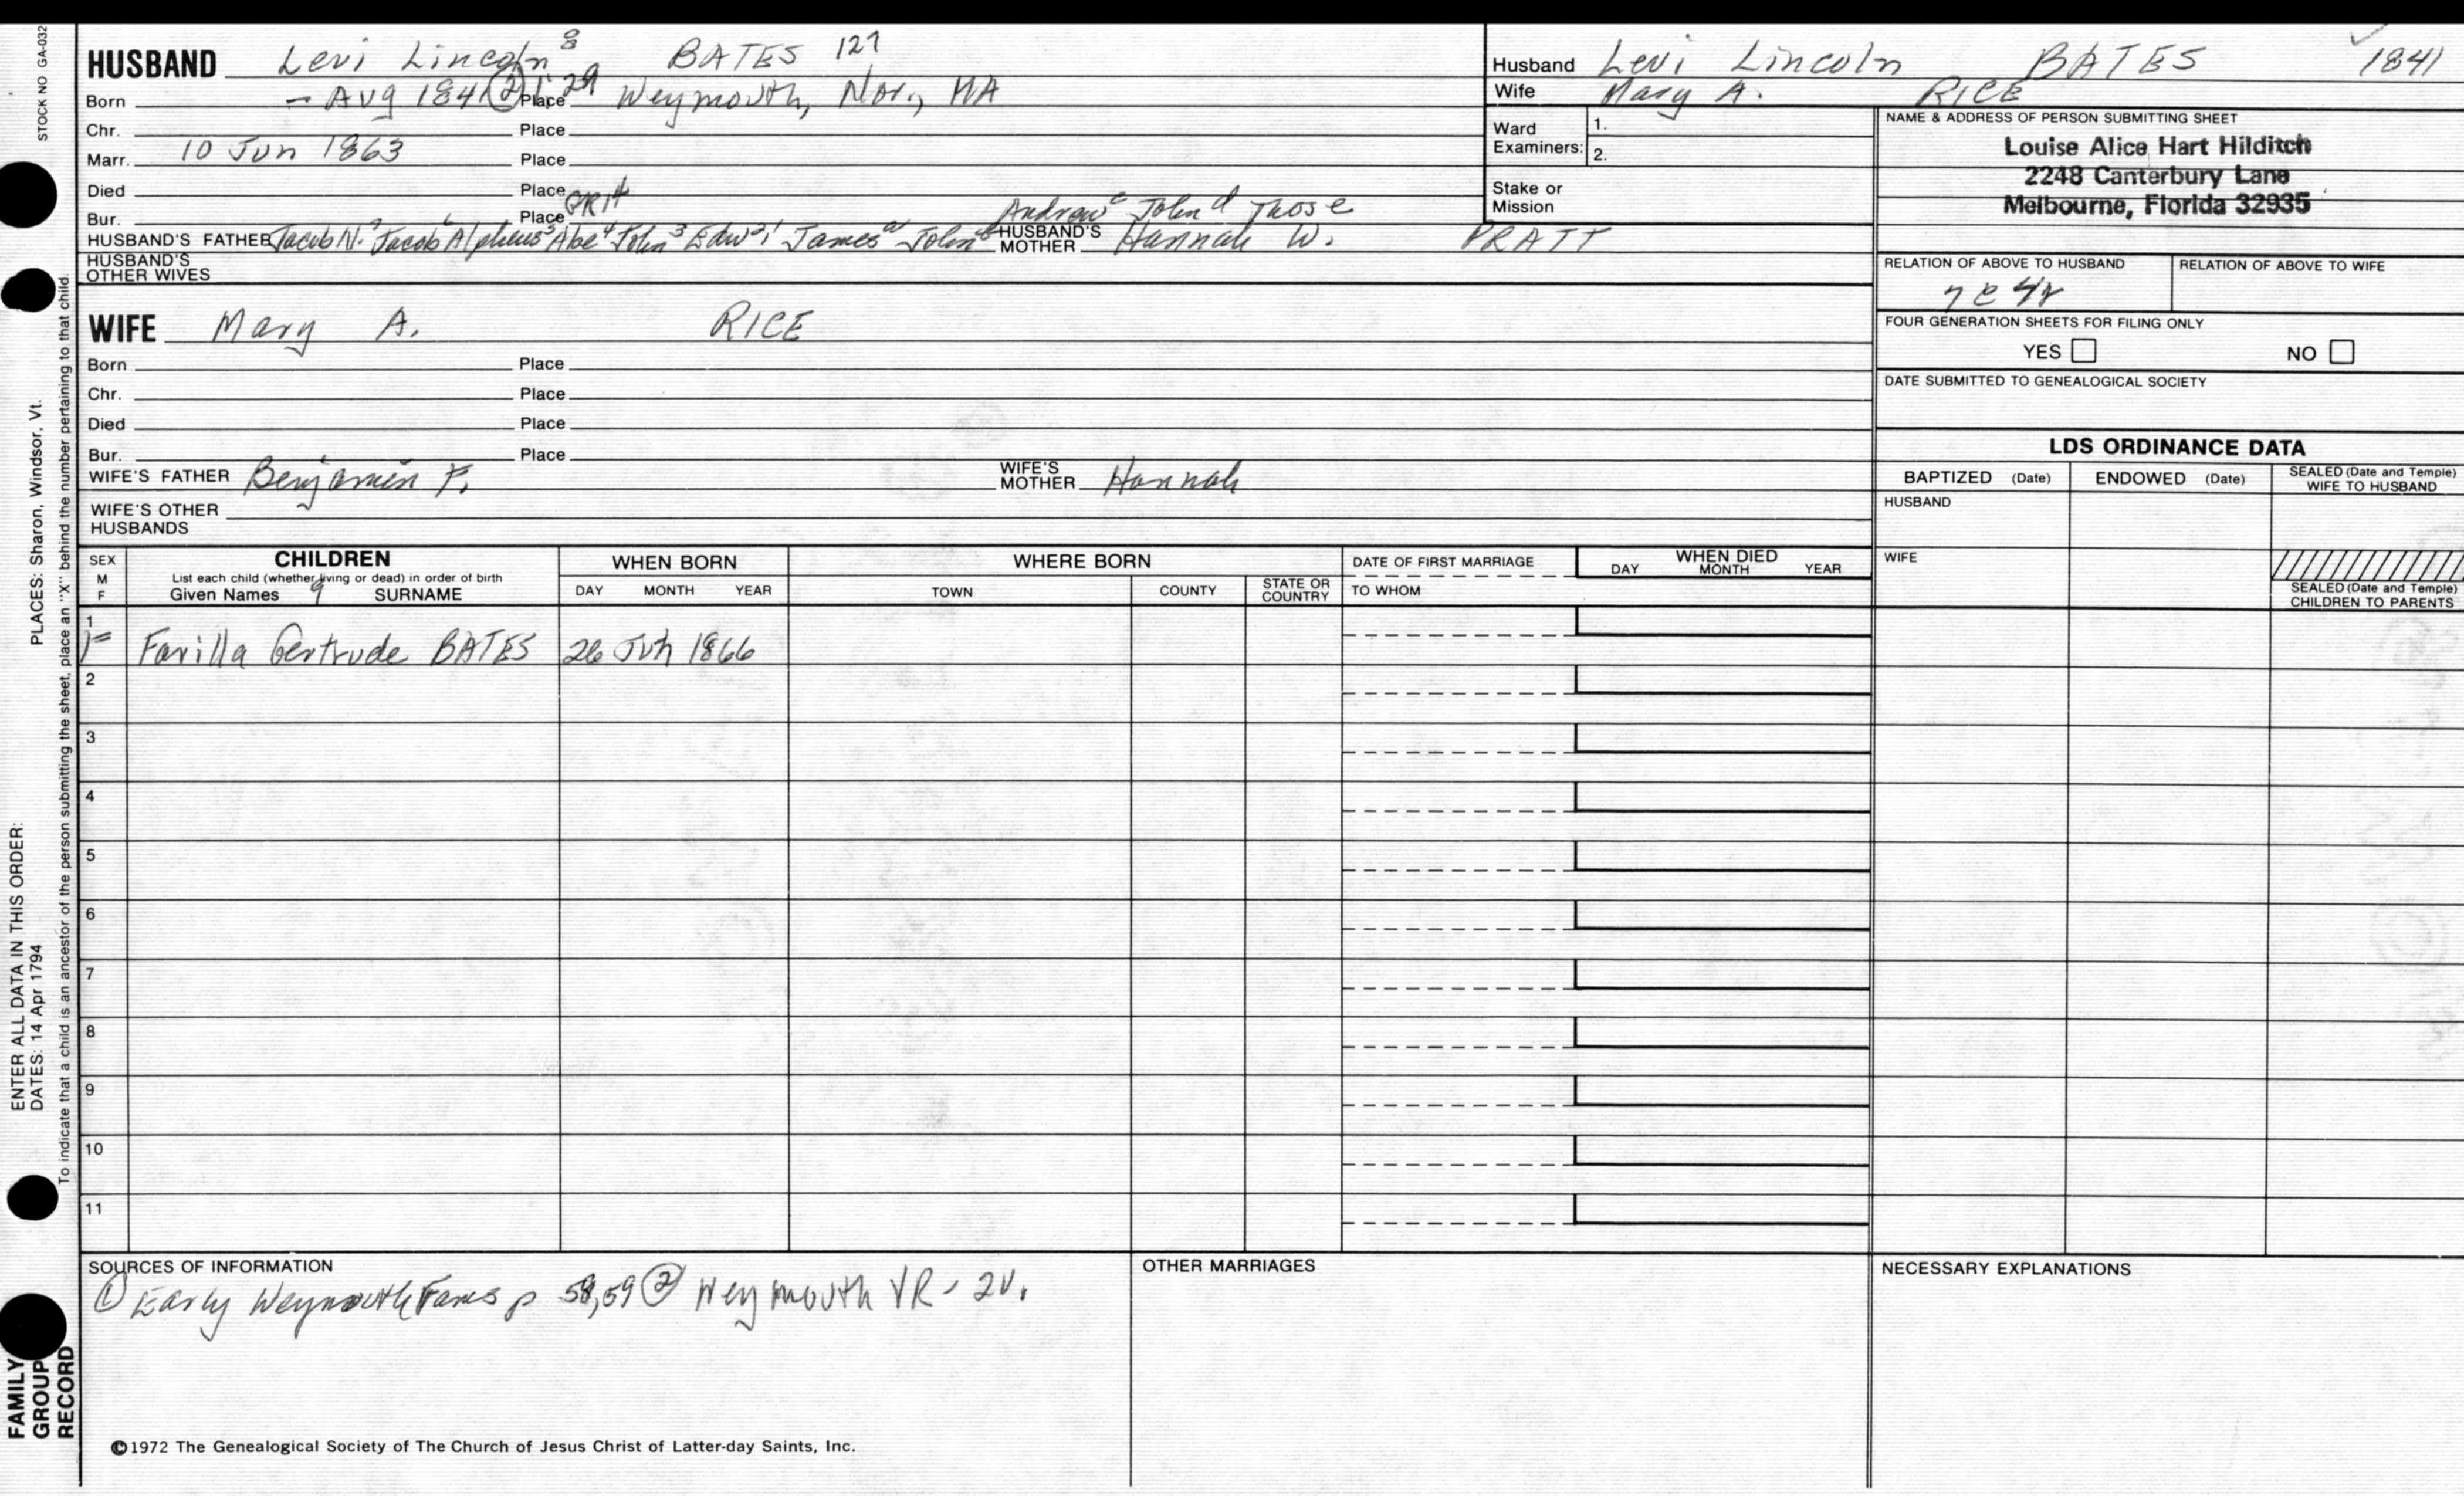 STOCK NO GA-032
HUSBAND Levi Lincoln 8 BATES 127
Born - Aug 1841 (2) 1:29 Place Weymouth, Nor., MA
Chr. Place
Marr. 10 Jun 1863 Place
Died Place
Bur. Place Andrew c John d Those
HUSBAND'S FATHER Jacob N. 7 Jacob 6 Alpheus 5 Abe 4 John 3 Edw 2 1 James a John b HUSBAND'S MOTHER Hannah W. PRATT
HUSBAND'S OTHER WIVES
Husband Levi Lincoln BATES 1841
Wife Mary A. RICE
Ward Examiners: 1.
2.
Stake or Mission
NAME & ADDRESS OF PERSON SUBMITTING SHEET
Louise Alice Hart Hilditch
2248 Canterbury Lane
Melbourne, Florida 32935
RELATION OF ABOVE TO HUSBAND RELATION OF ABOVE TO WIFE
7C 4r
FOUR GENERATION SHEETS FOR FILING ONLY
YES NO
DATE SUBMITTED TO GENEALOGICAL SOCIETY
WIFE Mary A. RICE
Born Place
Chr. Place
Died Place
Bur. Place
WIFE'S FATHER Benjamin F. WIFE'S MOTHER Hannah
WIFE'S OTHER HUSBANDS
LDS ORDINANCE DATA
BAPTIZED (Date) ENDOWED (Date) SEALED (Date and Temple) WIFE TO HUSBAND
HUSBAND
WIFE
SEALED (Date and Temple) CHILDREN TO PARENTS
SEX M F
CHILDREN
List each child (whether living or dead) in order of birth
Given Names 9 SURNAME
WHEN BORN
DAY MONTH YEAR
WHERE BORN
TOWN COUNTY STATE OR COUNTRY
DATE OF FIRST MARRIAGE
TO WHOM
WHEN DIED
DAY MONTH YEAR
1
F Farilla Gertrude BATES 26 Jun 1866
2
3
4
5
6
7
8
9
10
11
SOURCES OF INFORMATION
① Early Weymouth Fams p 58,59 ② Weymouth VR - 2V.
OTHER MARRIAGES
NECESSARY EXPLANATIONS
©1972 The Genealogical Society of The Church of Jesus Christ of Latter-day Saints, Inc.
PLACES: Sharon, Windsor, Vt.
To indicate that a child is an ancestor of the person submitting the sheet, place an "X" behind the number pertaining to that child.
ENTER ALL DATA IN THIS ORDER:
DATES: 14 Apr 1794
FAMILY GROUP RECORD